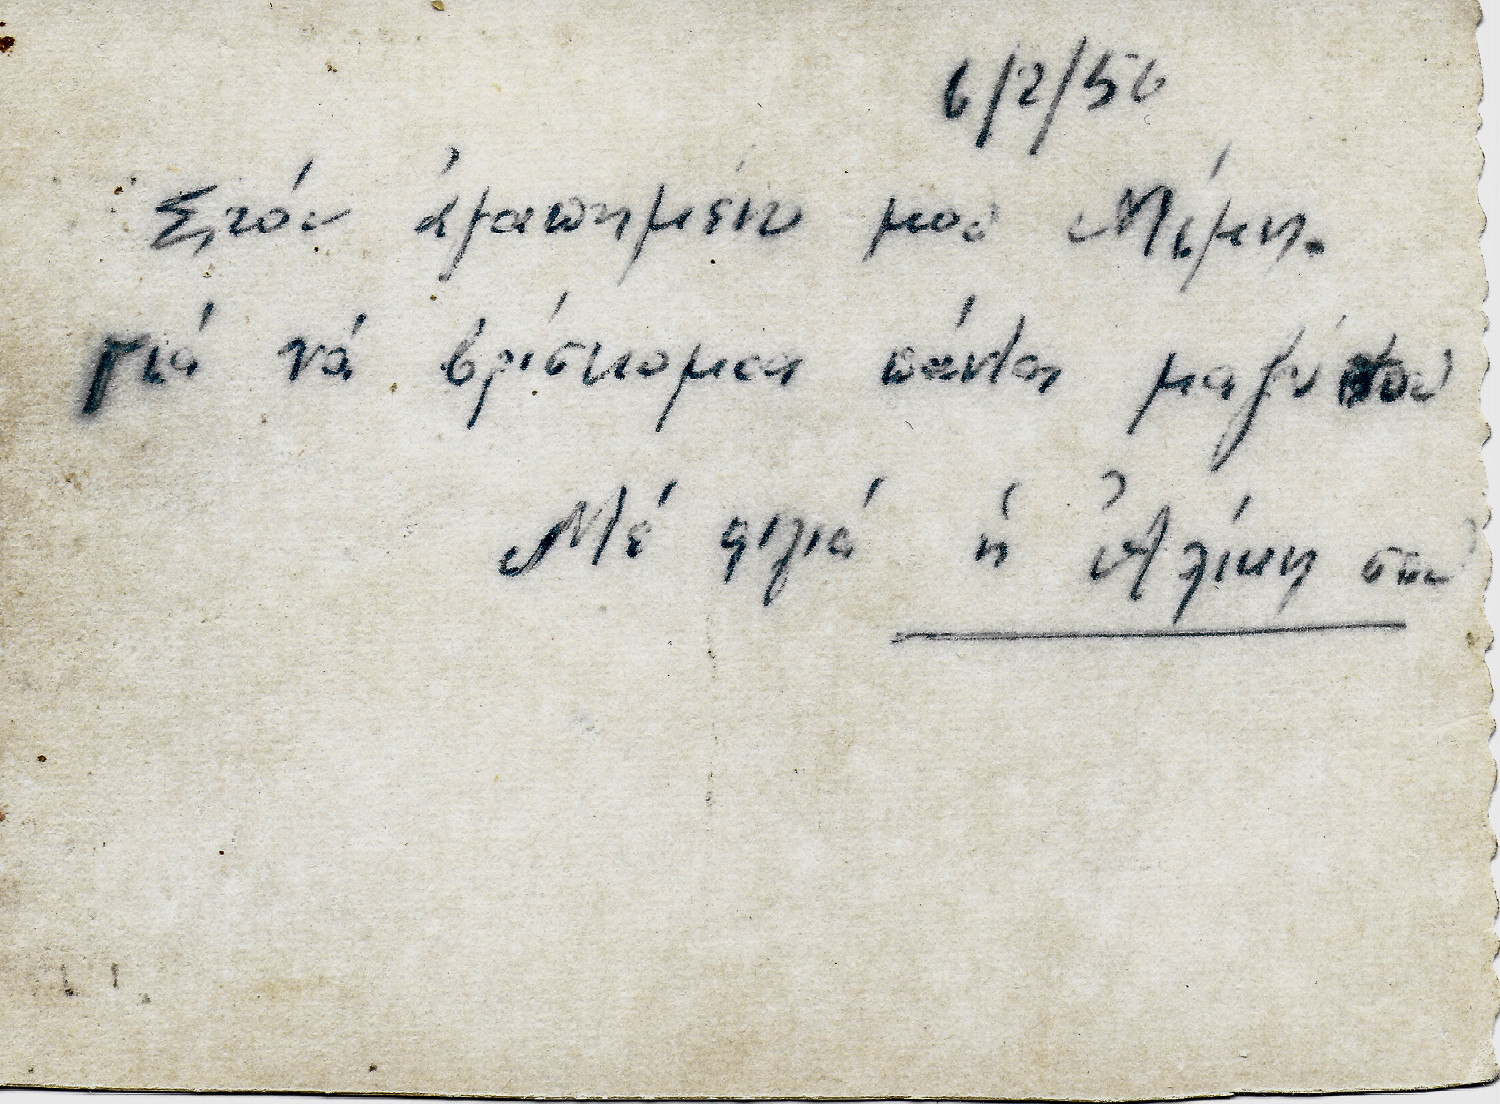 6/2/56
Στόν ἀγαπημένο μου Μίμη.
Γιά νά βρίσκομαι πάντα μαζύ σου
Μέ φιλιά ἡ Ἀλίκη σου